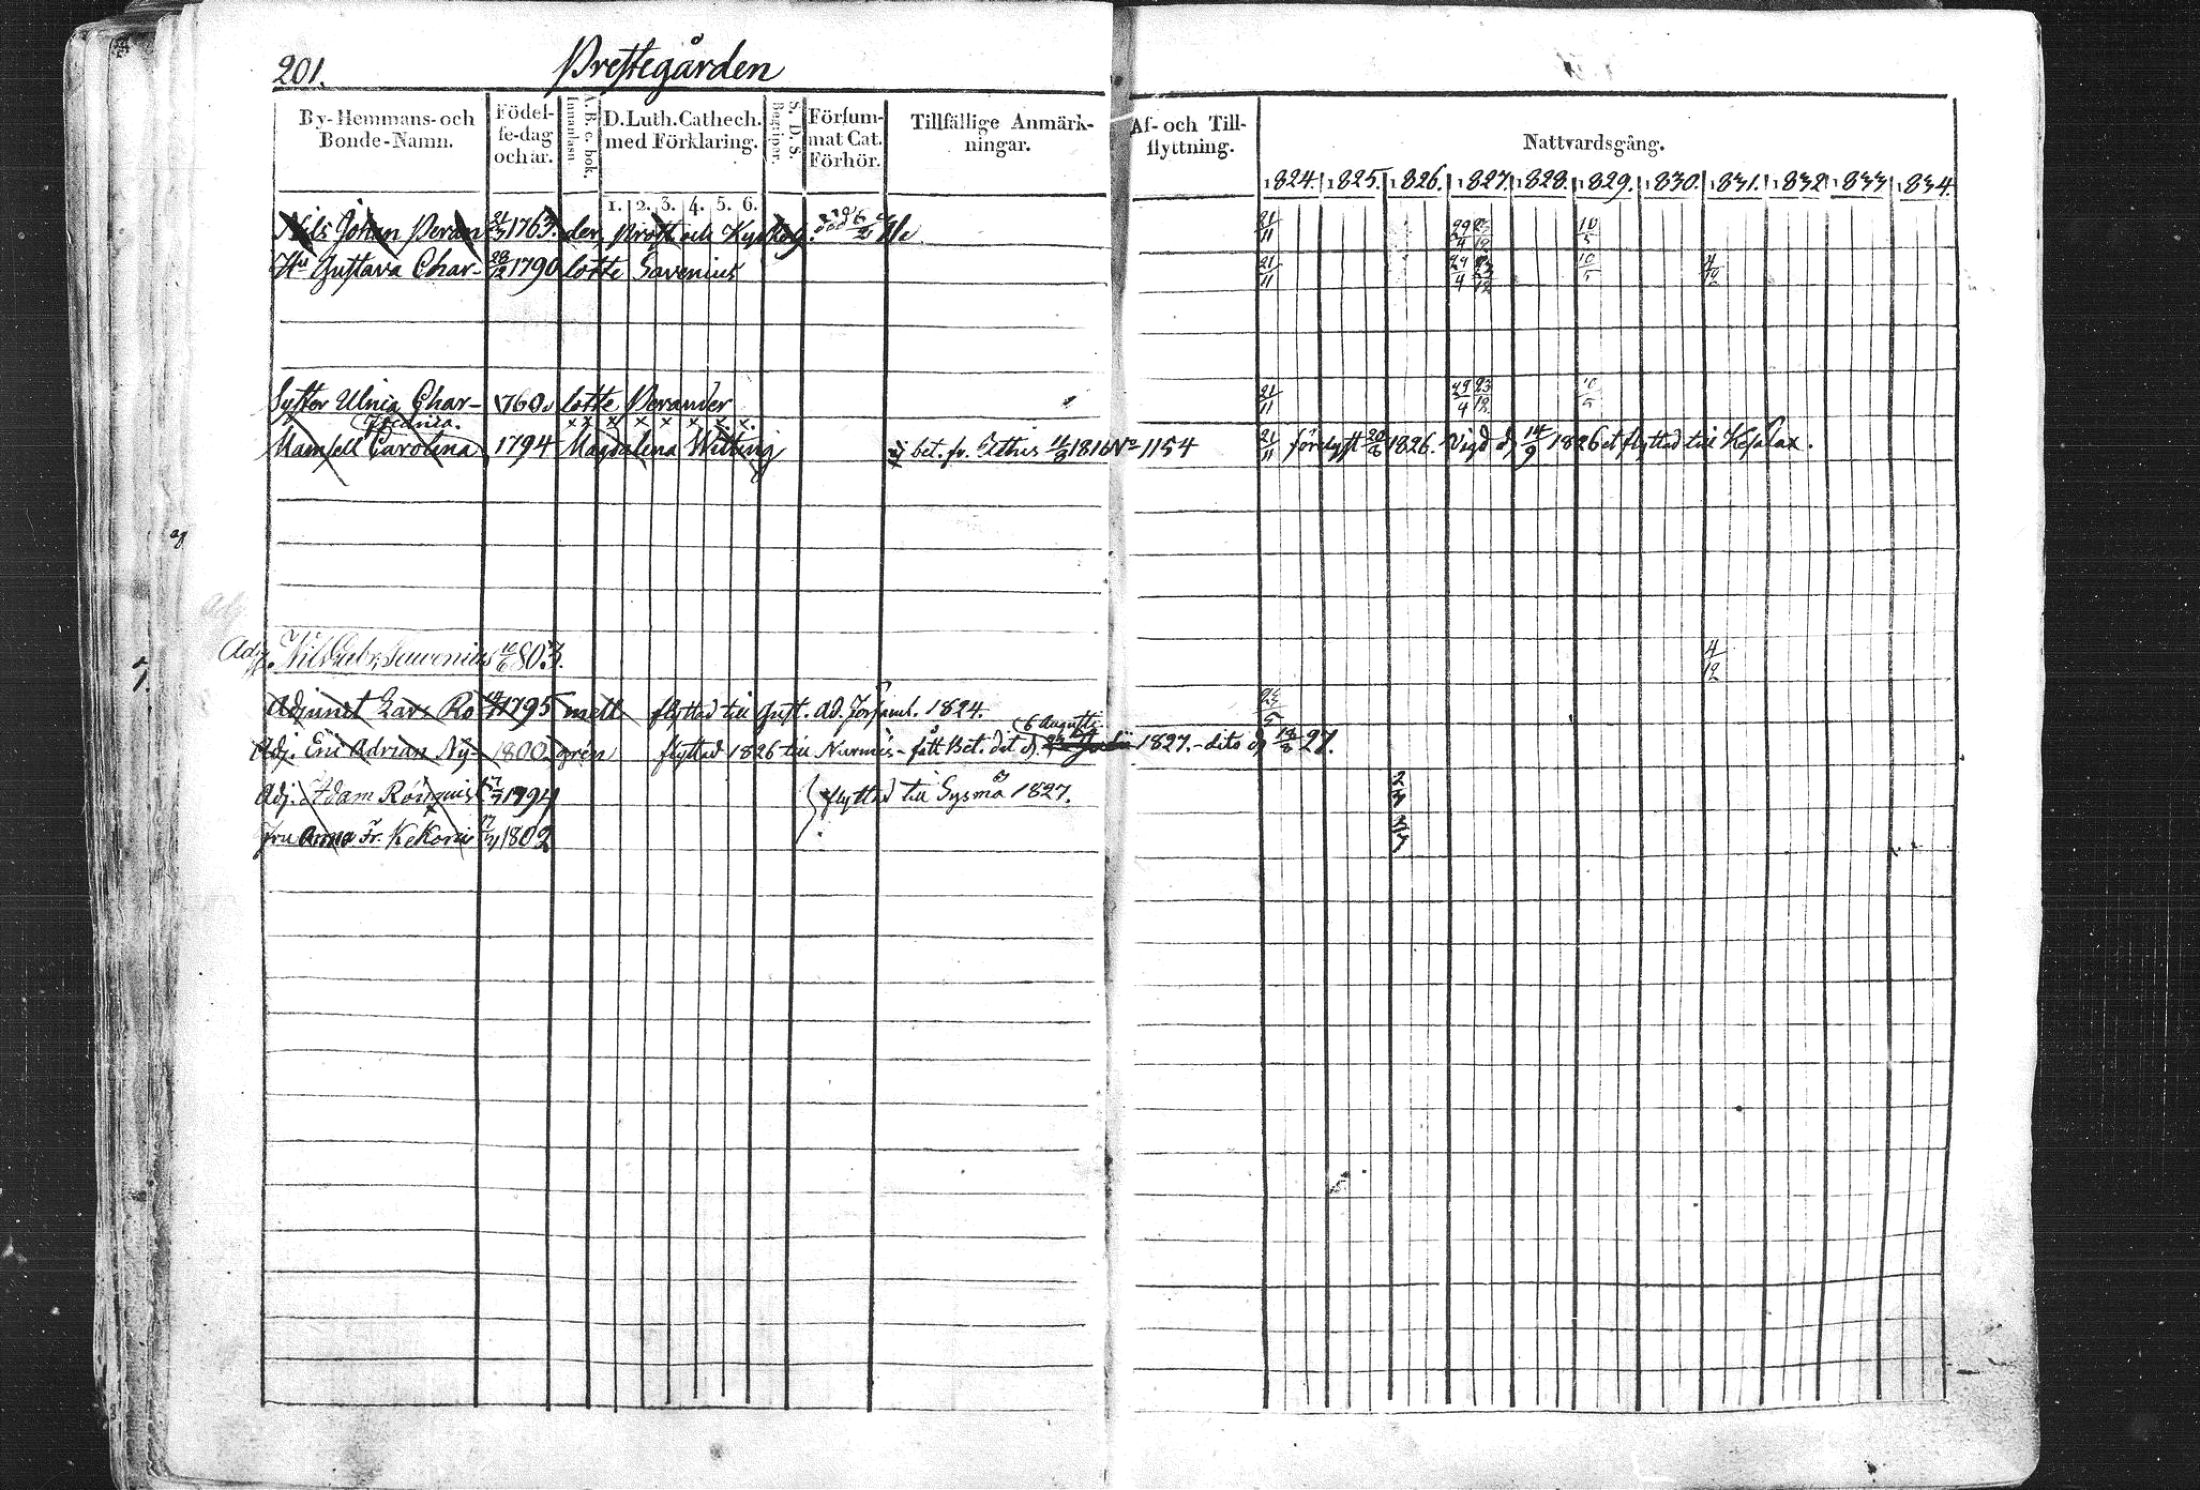 201.
Prestegården
By-Hemmans- och Bonde-Namn.
Födel-se-dag och år.
A. B. c. bok. Innanläsn
D. Luth. Cathech. med Förklaring.
S. D. S. Begriper.
Försum-mat Cat. Förhör.
Tillfällige Anmärk-ningar.
Af- och Till-flyttning.
Nattvardsgång.
1824. 1825. 1826. 1827. 1828. 1829. 1830. 1831. 1832 1833 1834.
1. 2. 3. 4. 5. 6.
Nils Johan Peran 1763. der, Prost och Kyrkoh. 21/11 29/4 23/12 10/5
Hu Gustava Char- 28/12 1790 lotte Savenius 21/11 29/4 23/12 10/5 4/12
Syster Ulrica Char- 1760. lotte Perander 21/11 29/4 23/12 10/5
Fredrica.
x x x x x x x x.
Mamsell Carolina 1794 Magdalena Witting bet. fr. 1816 No 1154 21/11 1826. Vigd d. 14/9 1826 et flyttad till Kesälax.
Adj. Savenius 1803. 4/12
Adjunct Lars Ro 1795 mell flyttad till Gust. Ad. Församl. 1824.
6 Augusti
Adj. Eric Adrian Ny- 1800 gren flyttad 1826 till Nurmis - fått Bet. dit d. 1827. - dito d. 18/8 27.
Adj. Adam 1794 flyttad till Sysmä 1827.
Fru Anna Fr. Kekoni 1802